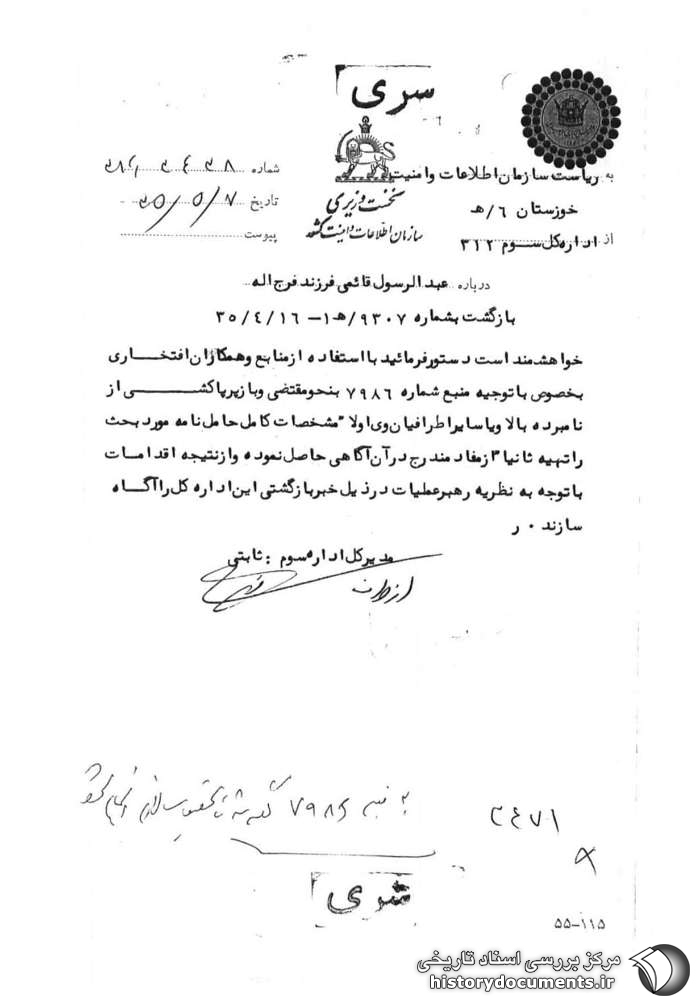 سری
به ریاست سازمان اطلاعات و امنیت
خوزستان ۶/ه‍
از اداره کل سوم ۳۱۲
نخست وزیری
سازمان اطلاعات و امنیت کشور
شماره
تاریخ ۳۵/۵/۷
پیوست
درباره عبدالرسول قائمی فرزند فرج اله
بازگشت بشماره ۹۳۰۷/ه‍۱-۳۵/۴/۱۶
خواهشمند است دستور فرمائید با استفاده از منابع و همکاران افتخاری
بخصوص با توجیه منبع شماره ۷۹۸۶ بنحو مقتضی و با زیر پا کشی از
نامبرده بالا و یا سایر اطرافیان وی اولا" مشخصات کامل حامل نامه مورد بحث
را تهیه ثانیا" از مفاد مندرج در آن آگاهی حاصل نموده و از نتیجه اقدامات
با توجه به نظریه رهبر عملیات در ذیل خبر بازگشتی این اداره کل را آگاه
سازند . ر
مدیر کل اداره سوم : ثابتی
از طرف
به منبع ۷۹۸۶ گفته شد تا تحقیقات
۲۴۷۱
سری
۵۵-۱۱۵
مرکز بررسی اسناد تاریخی
historydocuments.ir